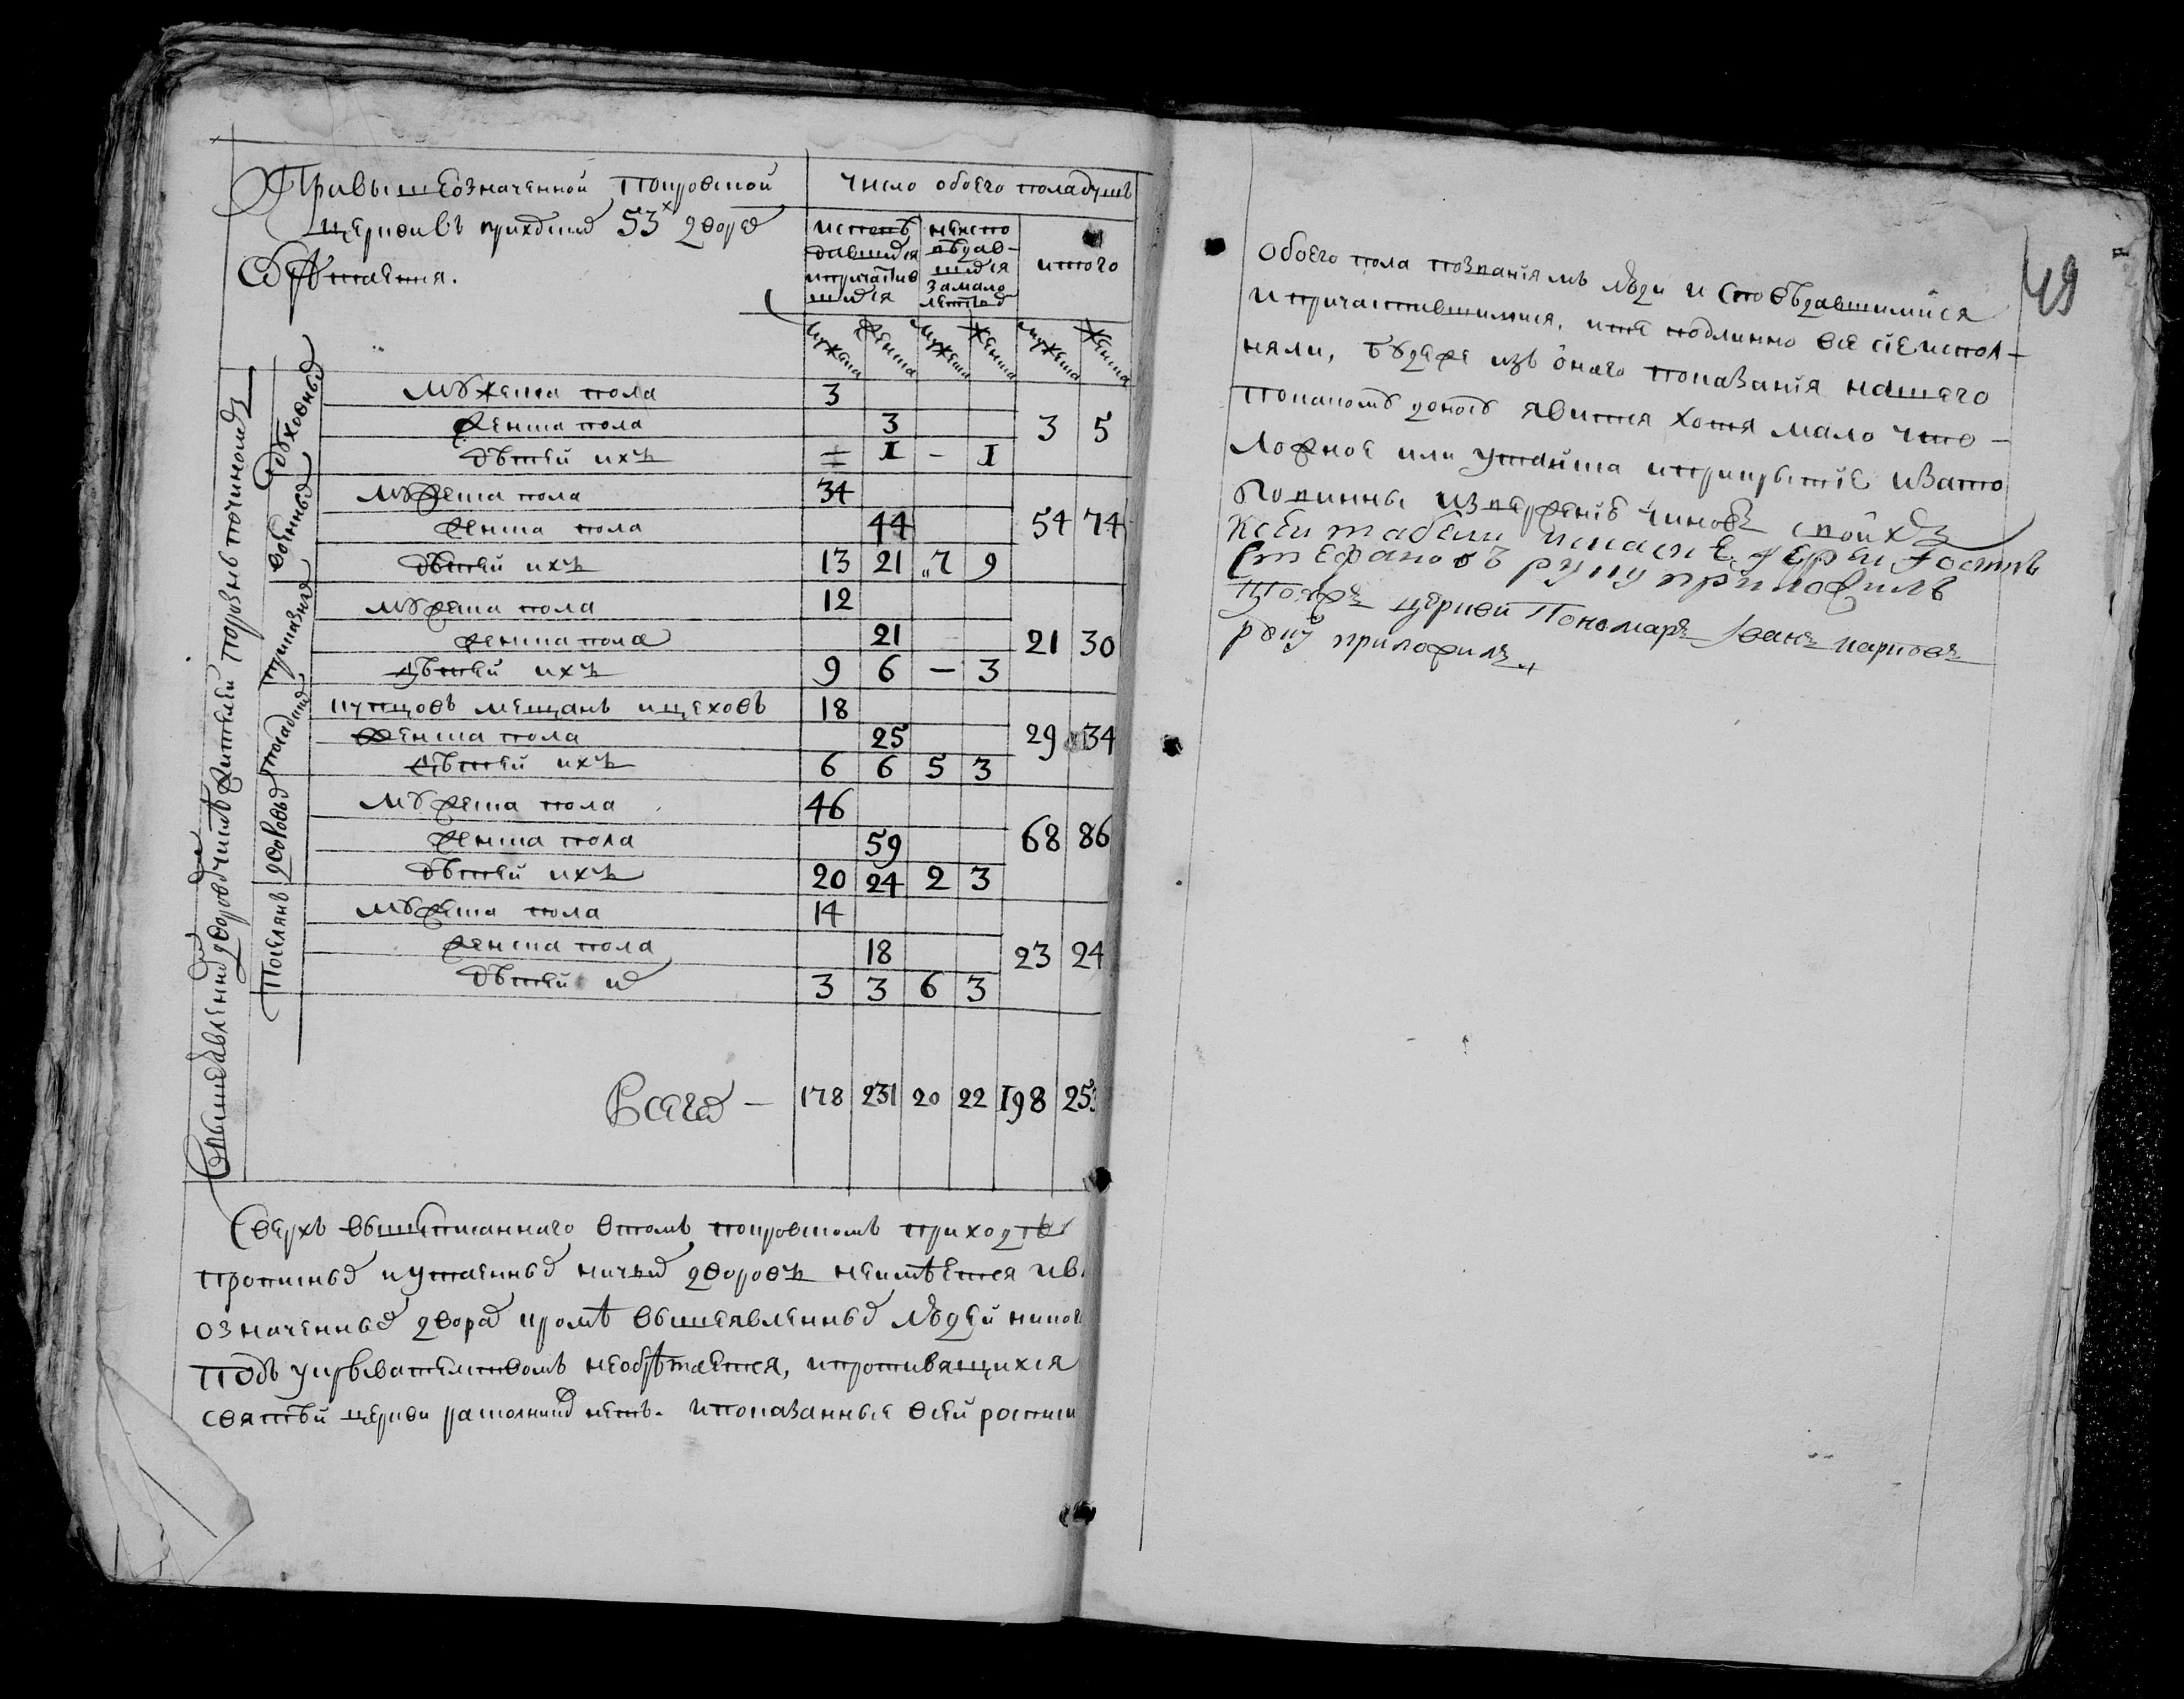 При вышеозначенной покровской
церкви въ приходскихъ 53х дворехъ
обретается.
Число обоего пола душъ
исповѣ
давшихся
и причастив
шихся
неиспо
вѣдав-
шихся
за мало
летствомъ
итого
мужеска
женска
мужеска
женска
мужеска
женска
Духовныхъ
мужеска пола 3
женска пола 3 3 5
дѣтей ихъ = 1 - 1
военныхъ
мужеска пола 34
женска пола 44 54 74
дѣтей ихъ 13 21 „7 9
приказныхъ
мужеска пола 12
женска пола 21 21 30
дѣтей ихъ 9 6 - 3
посадскихъ
купцовъ мещанъ и цеховъ 18
женска пола 25 29 34
дѣтей ихъ 6 6 5 3
дворовыхъ
мужеска пола 46
женска пола 59 68 86
дѣтей ихъ 20 24 2 3
Поселянъ
мужеска пола 14
женска пола 18 23 24
дѣтей их 3 3 6 3
Всего — 178 231 20 22 198 253
Сверхъ вышеписаннаго в томъ покровскомъ приходѣ
прописныхъ и утаенныхъ ничьихъ дворовъ неимѣется и въ
означенныхъ дворахъ кромѣ вышеявленныхъ людей никого
подъ укрывателствомъ необрѣтается, и противящихся
святѣй церкви раскольниковъ нетъ. и показанные в сей росписи
49
обоего пола по званіямъ люди исповѣдавшимися
и причастившимися, и те подлинно все сіе испол-
няли, буде же изъ онаго показанія нашего
по какому доносу явится хотя мало что-
ложное или утайка и прикрытіе и за то
повинны извержению чиновъ своихъ
К сей табели иерей
Стефановъ руку приложилъ
Тояже церкви Пономарь Іванъ карповъ
руку приложилъ